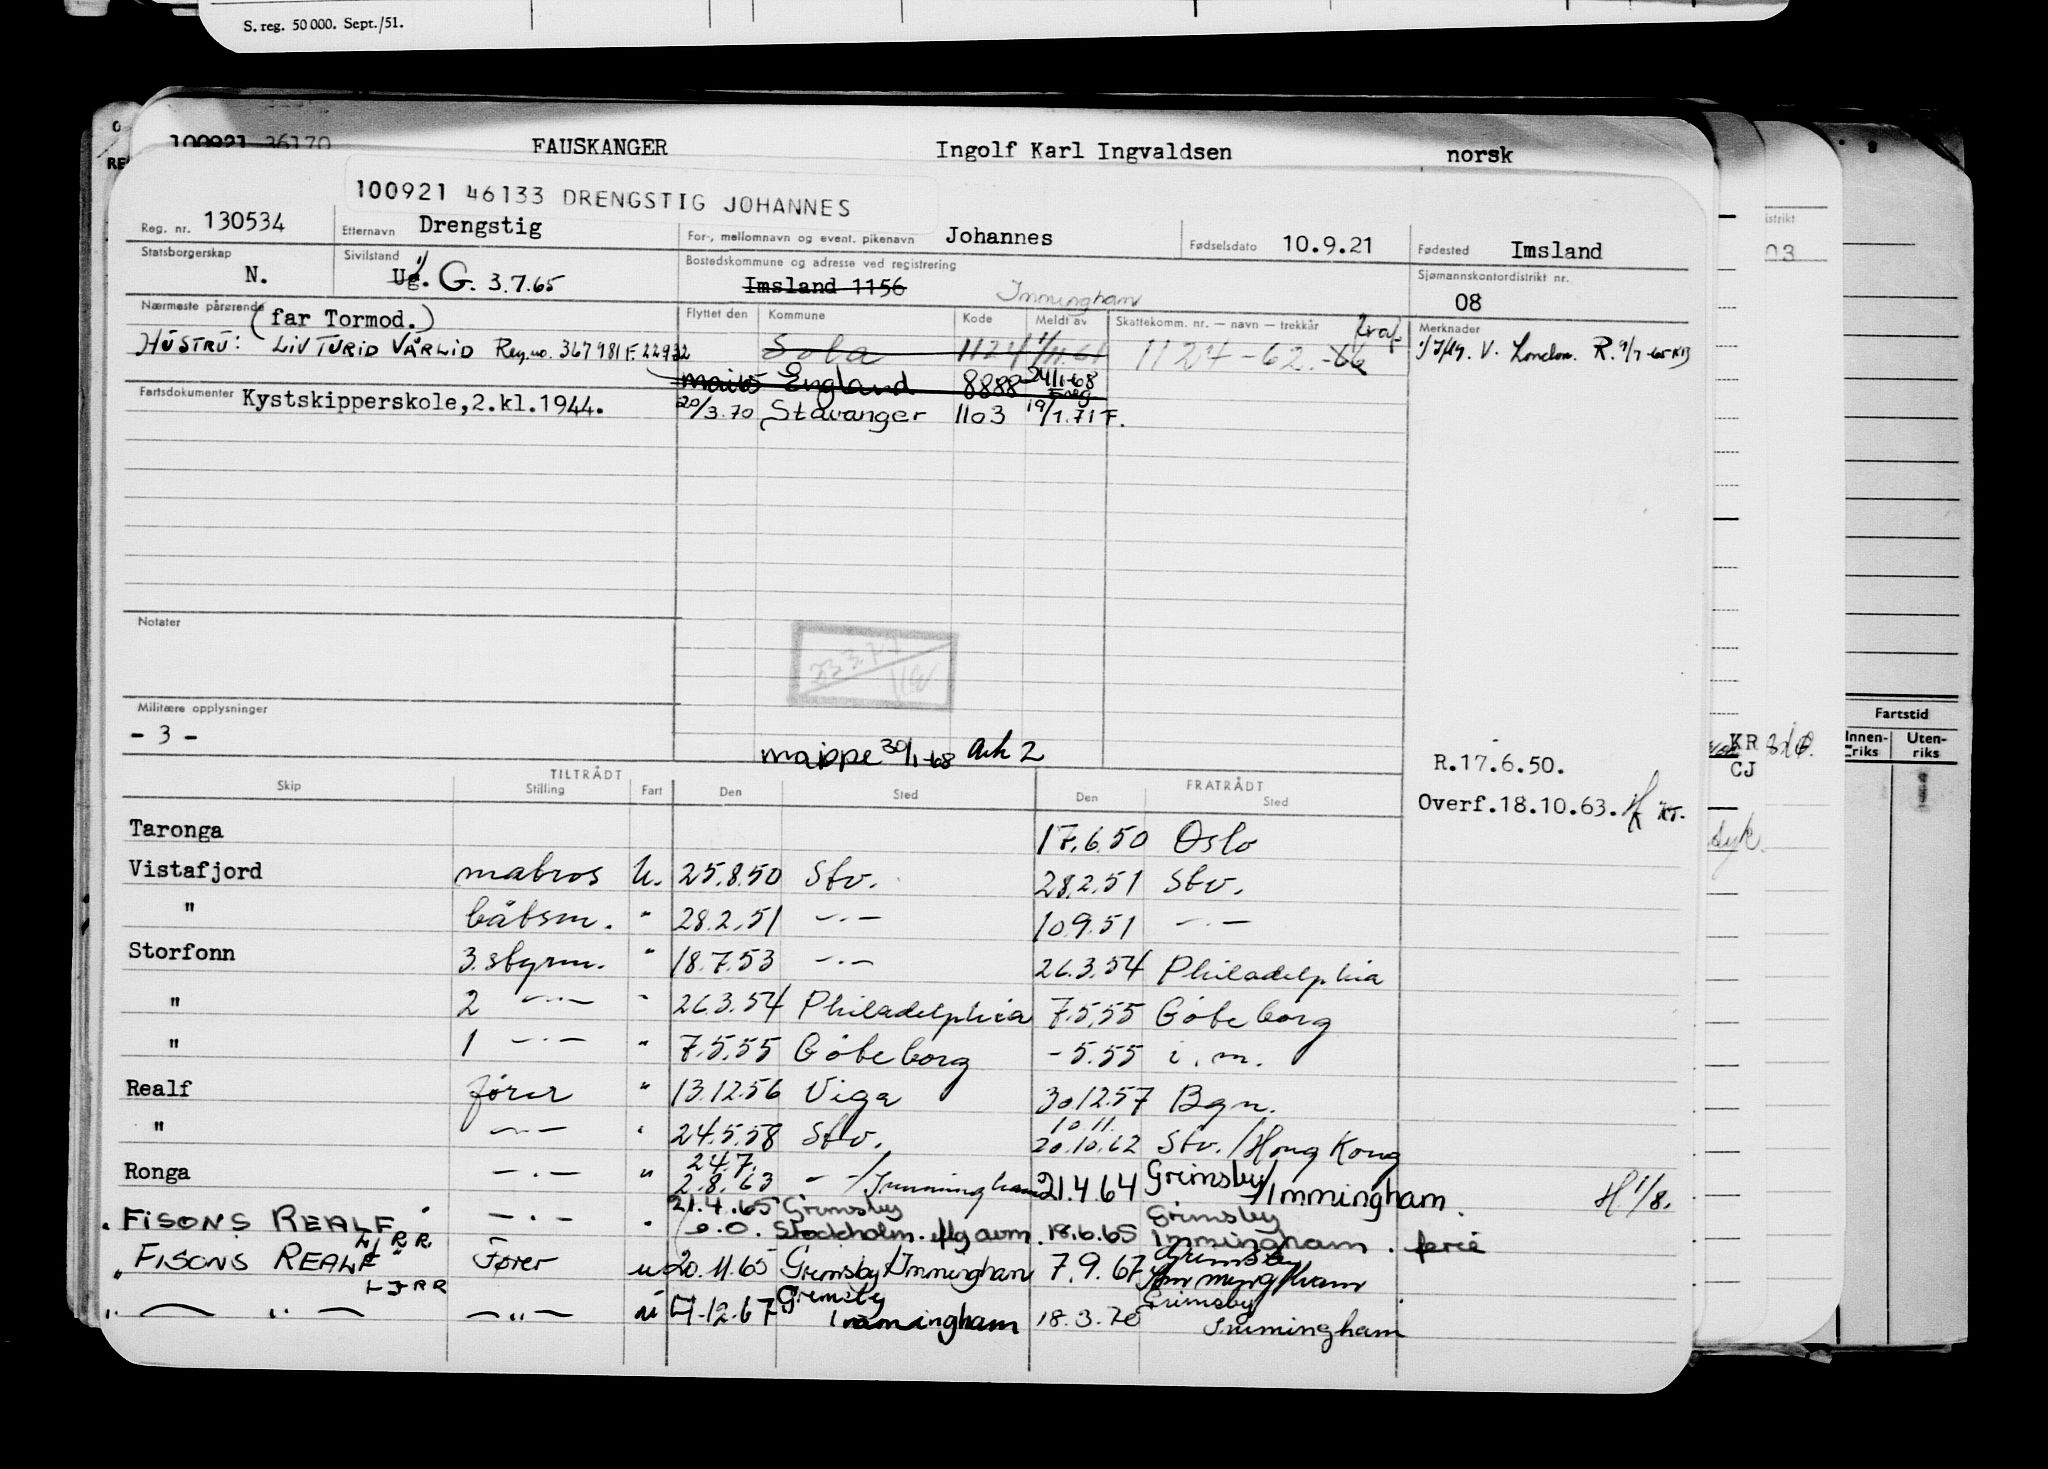 S. reg. 50 000. Sept./51.
100921 36170 FAUSKANGER Ingolf Karl Ingvaldsen norsk
100921 46133 DRENGSTIG JOHANNES
Reg. nr. 130534 Etternavn Drengstig For-, mellomnavn og event. pikenavn Johannes Fødselsdato 10.9.21 Fødested Imsland
Statsborgerskap N. Sivilstand Ug. 1) G. 3.7.65 Bostedskommune og adresse ved registrering Imsland 1156 Sjømannskontordistrikt nr. 08
Immingham
Nærmeste pårørende (far Tormod.) Flyttet den Kommune Kode Meldt av Skattekomm. nr. — navn — trekkår Merknader
HUSTRU: LIV TURID VÅRLID Reg.no. 367981 F. 22932 Sola 1124 1/11.61 1124-62.-66 1) Iflg. V. London. R. 9/7-65
mai 65 England 8888 24/1-68
Fartsdokumenter Kystskipperskole, 2.kl.1944. 20/3.70 Stavanger 1103 19/1.71 F.
Notater
Militære opplysninger
- 3 -
mappe 30/1-68 Ark 2
R.17.6.50.
Overf.18.10.63.
Skip TILTRÅDT Stilling Fart Den Sted FRATRÅDT Den Sted
Taronga 17.6.50 Oslo
Vistafjord matros U. 25.8.50 Stv. 28.2.51 Stv.
" båtsm. " 28.2.51 —·— 10.9.51 —·—
Storfonn 3. styrm. " 18.7.53 —·— 26.3.54 Philadelphia
" 2 —·— " 26.3.54 Philadelphia 7.5.55 Göteborg
" 1 —·— " 7.5.55 Göteborg -5.55 i.m.
Realf fører " 13.12.56 Viga 30.12.57 Bgn.
" —·— " 24.5.58 Stv. 10.11. 20.10.62 Stv./Hong Kong
Ronga —·— " 24.7. 2.8.63 —·—/Immingham 21.4.64 Grimsby/Immingham. H 1/8.
FISONS REALF —·— " 21.4.65 Grimsby Stockholm. 18.6.65 Grimsby Immingham. ferie
LJRR
FISONS REALF Fører u 20.11.65 Grimsby/Immingham 7.9.67 Grimsby Immingham
LJRR
" — " — —"— u 4-12.67 Grimsby Immingham 18.3.70 Grimsby Immingham
istrikt
03
KR
CJ
Fartstid
Innenriks Utenriks